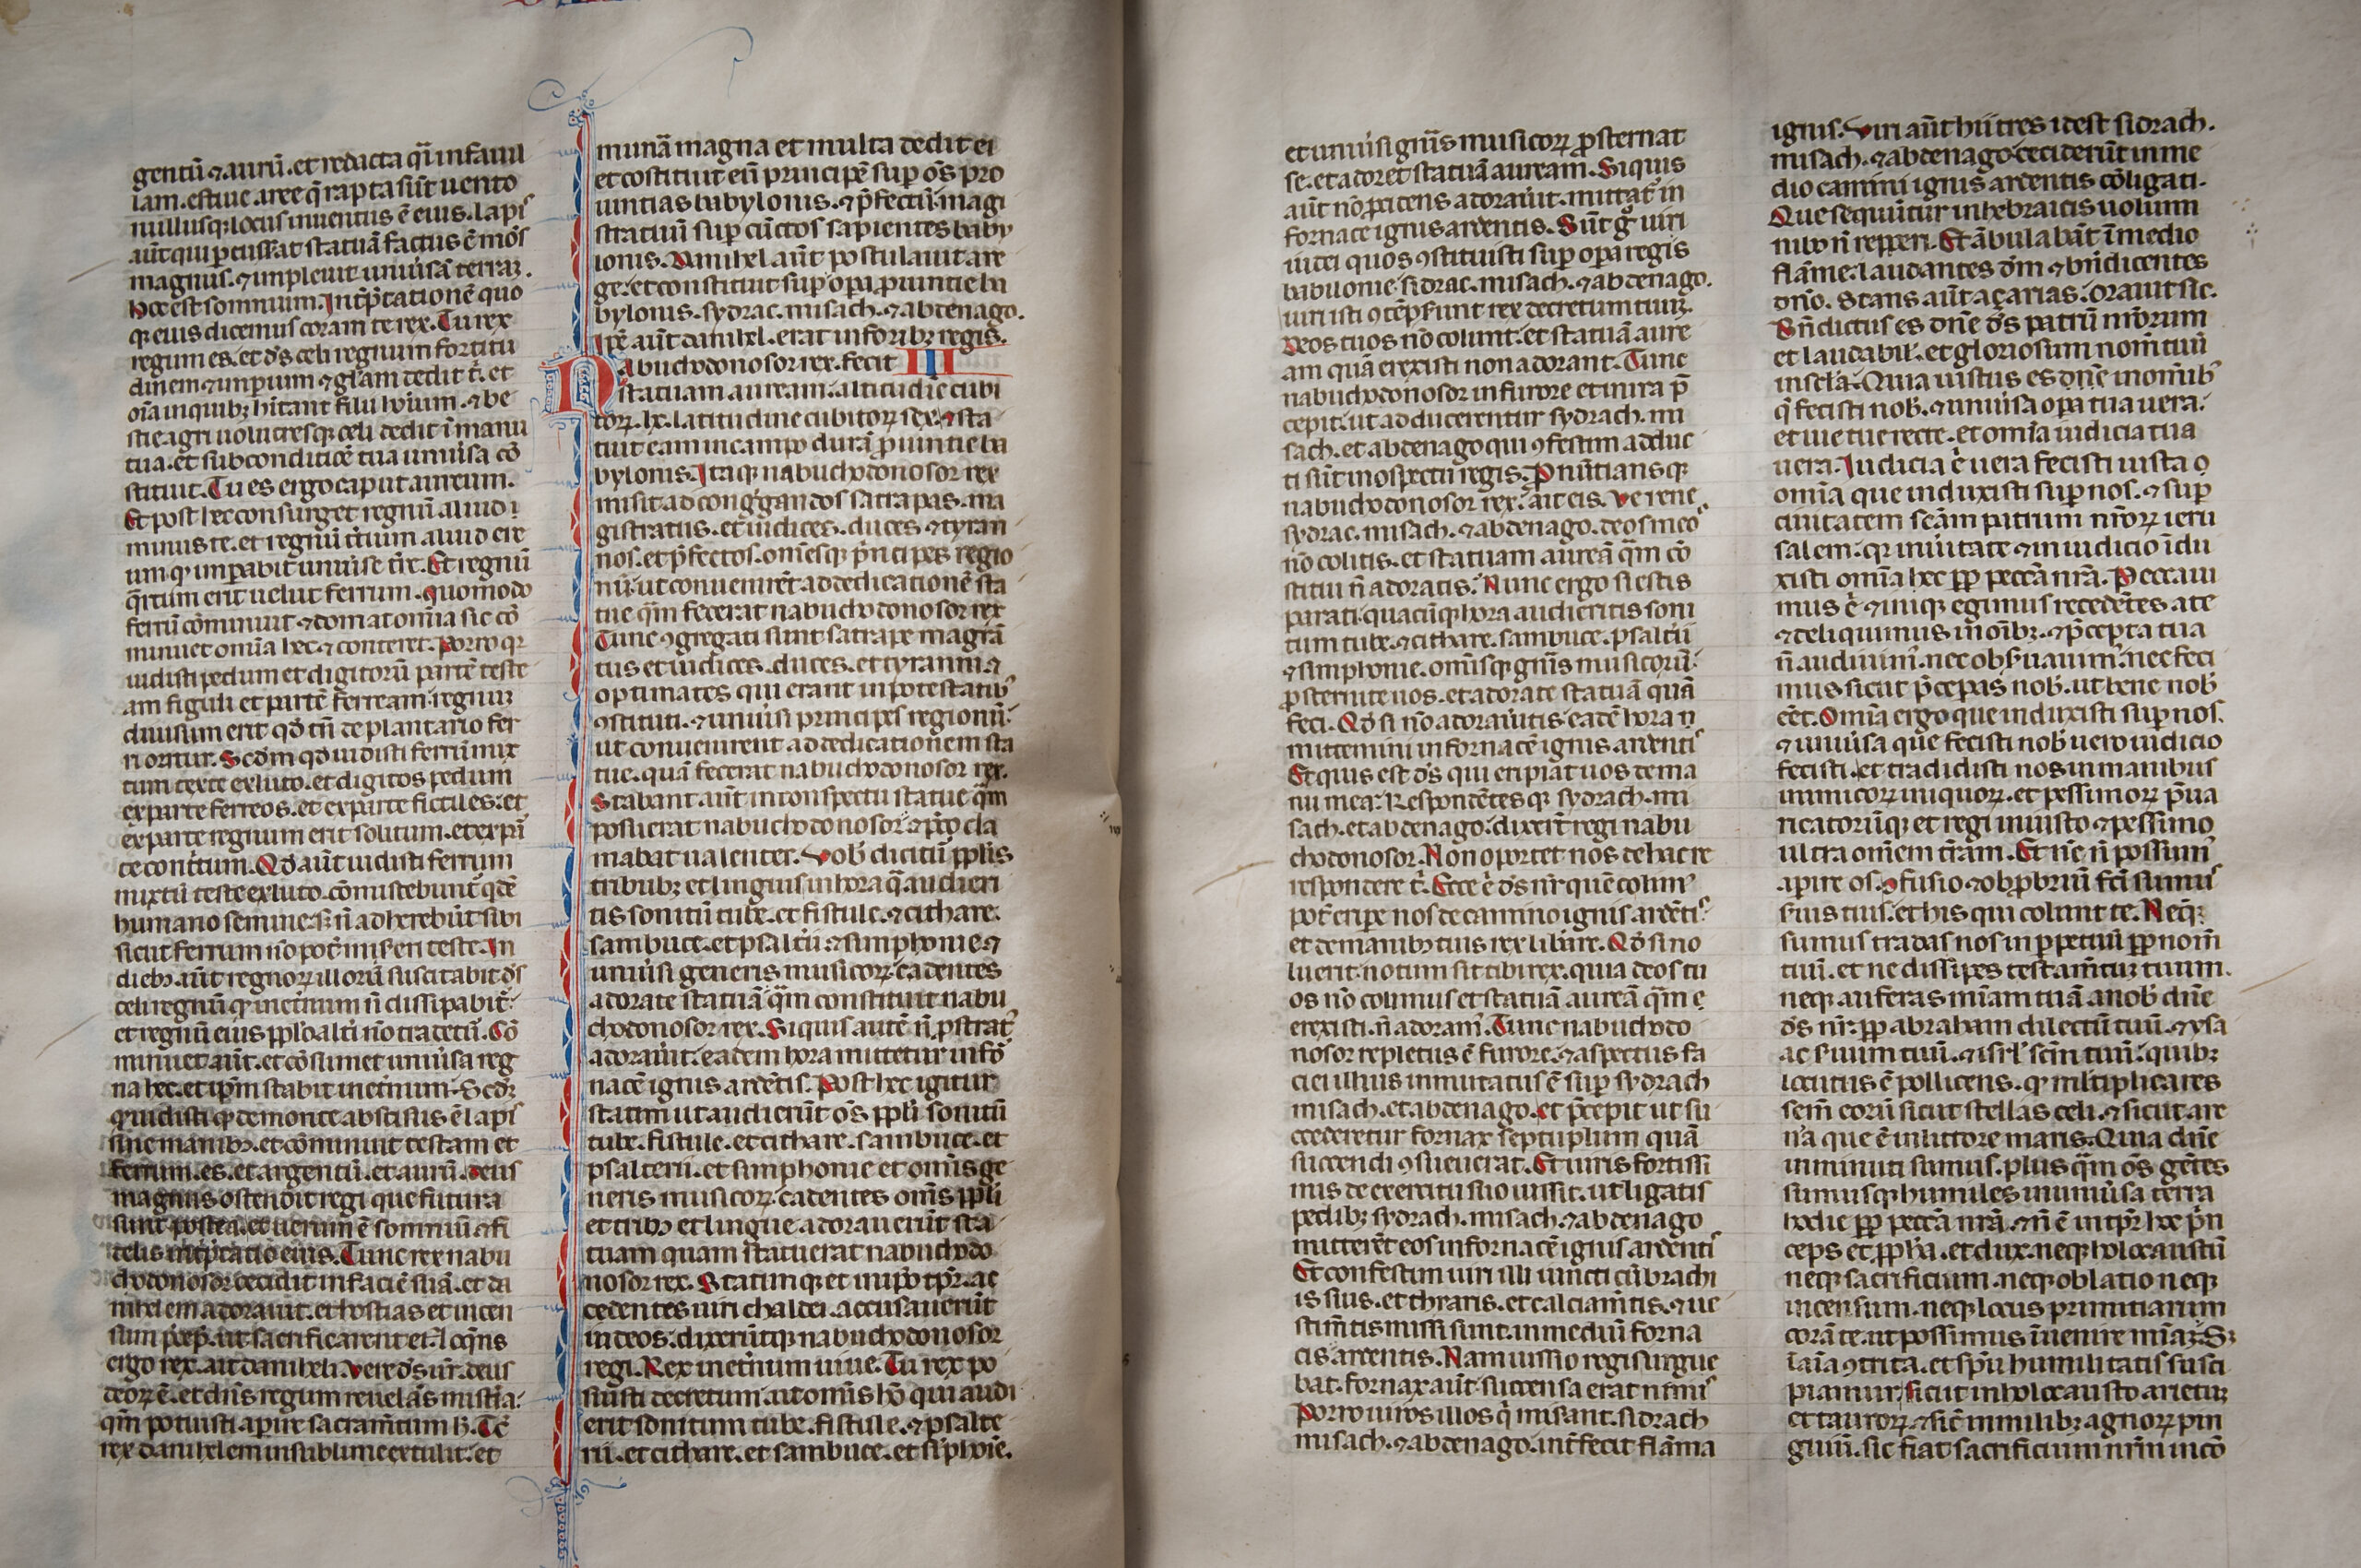 gentū ⁊ aurū. et redacta q̄i in fauil
lam. estiue aree q̄ rapta sūt uento
nullusq; locus inuentus ē eius. lapis
aūt qui ꝑcusserat statuā factus ē mōs
magnus. ⁊ impleuit uniuīsā terraꝫ.
hoc est somnium. Inťp̄tationē quo
qꝫ eius dicemus coram te rex. Tu rex
regum es. et dꝰs celi regnum fortitu
dinem ⁊ imperium ⁊ głam dedit t̄. et
oīa in quibꝫ hītant filii hōīum. ⁊ be
stie agri uolucresqꝫ celi dedit ī manu
tua. et sub condiciōē tua uniuīsa cō
stituit. Tu es ergo caput aureum.
Et post hec consurget regnū aliud ī
minus te. et regnū ťtium aliud ere
um qꝫ imꝑabit uniuīse tīre. Et regnū
q̄rtum erit uelut ferrum. quomodo
ferrū cōminuit ⁊ domat omīa sic cō
minuet omīa hec ⁊ conteret. Porro qꝛ
uidisti pedum et digitorū partē teste
am figuli et partē ferream. regnuꝫ
diuisum erit qđ tn̄ de plantario fer
ri oritur. Scđm qđ uidisti ferrū mix
tum teste ex luto. et digitos pedum
ex parte ferreos. et ex parte fictiles. et
ex parte regnum erit solitum. et ex pꝛ
te conťtum. Qđ aūt uidisti ferrum
mixtū teste ex luto. cōmiscebunť qđē
humano semine. sꝫ n̄ adherebūt sibi
sicut ferrum nō pōt misceri teste. In
diebꝫ aūt regnoꝝ illorū suscitabit dꝰs
celi regnū qꝫ ineťnum n̄ dissipabiť.
et regnū eius ppło alťi nō tradetū. Cō
minuet aūt. et cōsumet uniuīsa reg
na hec. et ipm̄ stabit ineťnum. Scđꝫ
q̄ uidisti qꝫ de monte abscisus ē lapis
sine manibꝫ. et cōminuit testam et
ferrum. es. et argentū. et aurū. Deus
magnus ostendit regi que futura
sunt postea. et uerum ē somniū ⁊ fi
telis inťp̄tatio eius. Tunc rex nabu
chodonosor cecidit in faciē suā. et da
nihelem adorauit. et hostias et incen
sum p̄cep̄. ut sacrificarent ei. Loq̄ns
ergo rex. ait daniheli. Vere dꝰs uīr. deus
deoꝝ ē. et dn̄s regum reuelās misťia.
qm̄ potuisti aperire sacramn̄tum h̄. Tc̄
rex danihelem in sublime extulit. et
munā magna et multa dedit ei
et costituit eū principē suꝑ ōs pro
uintias babylonis. ⁊ p̄fectū. magi
stratuū suꝑ cūctos sapientes baby
lonis. Danihel aūt postulauit a re
ge. et constituit suꝑ oꝑa ꝓuintie ba
bylonis. sydrac. misach. ⁊ abdenago.
Ip̄e aūt danihel. erat in foribꝫ regis.
Nabuchodonosor rex. fecit III
statuam auream. altitudīe cubi
toꝝ. lx. latitudine cubitoꝝ sex. ⁊ sta
tuit eam in campo durā ꝓuintie ba
bylonis. Itaqꝫ nabuchodonosor rex
misit ad congg̃gandos satrapas. ma
gistratus. et iudices. duces. ⁊ tyran
nos. et p̄fectos. omēsqꝫ p̄ncipes regio
nū. ut conuenirēt ad dedicationē sta
tue q̄m fecerat nabuchodonosor rex
Tunc ꝯgregati sunt satrape magrā
tus et iudices. duces. et tyranni ⁊
optimates qui erant in potestatibꝫ
ꝯstituti. ⁊ uniuīsi principes regionū.
ut conuenirent ad dedicationem sta
tue. quā fecerat nabuchodonosor rex.
Stabant aūt in conspectu statue q̄m
posuerat nabuchodonosor. ⁊ p̄co cla
mabat ualenter. Vob̄ dicitū ppłis
tribubꝫ et linguis in hora q̄ audieri
tis sonitū tube. et fistule. ⁊ cithare.
sambuce. et psaltīi. ⁊ simphonie ⁊
uniuīsi generis musicoꝝ. cadentes
adorate statuā q̄m constituit nabu
chodonosor rex. Si quis autē n̄ ꝓstrať
adorauīt. eadem hora mittetur in fō
nacē ignis ardētis. Post hec igitur
statim ut audierūt ōs ppłi sonitū
tube. fistule. et cithare. sambuce. et
psalterii. et simphonie et omīs ge
neris musicoꝝ. cadentes omīs ppłi
et tribꝫ et lingue adorauerūt sta
tuam quam statuerat nabuchodo
nosor rex. Statimqꝫ et in ipō tp̄r. ac
cedentes uiri chaldei. accusauerūt
iudeos. dixerūtqꝫ nabuchodonosor
regi. Rex ineťnum uiue. Tu rex po
suisti decretum. ut omīs hō qui audi
erit sonitum tube. fistule. ⁊ psalte
rii. et cithare. et sambuce. et sīphoīe.
et uniuīsi gn̄is musicoꝝ ꝓsternat
se. et adoret statuā auream. Si quis
aūt nō ꝓcidens adorauīt. mittať in
fornace ignis ardentis. Sūt ḡ uiri
iudei quos ꝯstituisti suꝑ oꝑa regis
babilonie. sidrac. misach. ⁊ abdenago.
uiri isti ꝯtēpserunt rex decretum tuuꝫ.
Deos tuos nō colunt. et statuā aure
am quā erexisti non adorant. Tunc
nabuchodonosor in furore et in ira p̄
cepit. ut adducerentur sydrach. mi
sach. et abdenago qui ꝯfestim adduc
ti sūt in ꝯspectu regis. Pnūtiansqꝫ
nabuchodonosor rex. ait eis. Vere ne
sydrac. misach. ⁊ abdenago. deos meos
nō colitis. et statuam aureā q̄m cō
stitui n̄ adoratis. Nunc ergo si estis
parati. quacūqꝫ hora audieritis soni
tum tube. ⁊ cithare. sambuce. psaltīi
⁊ simphonie. omīsqꝫ gn̄is musicorū.
ꝓsternite uos. et adorate statuā quā
feci. Qđ si nō adorauītis. eadē hora īi
mittemini in fornacē ignis ardentis
Et quis est dꝰs qui eripiat uos de ma
nu mea. Respondētesqꝫ sydrach. mi
sach. et abdenago. dixerūt regi nabu
chodonosor. Non oportet nos de hac re
respondere t̄. Ecce ē dꝰs nr̄ quē colimꝰ
pōt eripe nos de camino ignis ardētis.
et de manibꝫ tuis rex libare. Qđ si no
luerit. notum sit tibi rex. quia deos tu
os nō colimus et statuā aureā q̄m e
erexisti. n̄ adoramꝰ. Tunc nabuchodo
nosor repletus ē furore. ⁊ aspectus fa
ciei illius inmutatus ē suꝑ sydrach
misach. et abdenago. et p̄cepit ut su
ccederetur fornax septuplum quā
succendi ꝯsueuerat. Et uiris fortissi
mis de exercitu suo iussit. ut ligatis
pedibꝫ sydrach. misach. ⁊ abdenago
mitterēt eos in fornacē ignis ardentis
Et confestim uiri illi uincti cū brachi
is suis. et thiaris. et calciamn̄tis. ⁊ ue
stimn̄tis missi sunt. in mediū forna
cis ardentis. Nam iussio regis urgue
bat. fornax aūt succensa erat nimis
Porro uiros illos q̄ misāant. sidrach
misach. ⁊ abdenago. inťfecit flāma
ignis. Viri aūt hii tres idest sidrach.
misach. ⁊ abdenago. ceciderūt in me
dio camini ignis ardentis cōligati.
Que sequūtur in hebraicis uolumi
nibꝫ n̄ repperi. Et ābulabāt ī medio
flāme laudantes dm̄ ⁊ bn̄dicentes
dn̄o. Stans aūt açarias. orauit sic.
Bn̄dictus es dn̄e dꝰs patrū nr̄orum
et laudabił. et gloriosum nom̄ tuū
in sc̄la. Quia iustus es dn̄e in om̄ibꝫ
q̄ fecisti nob̄. ⁊ uniuīsa oꝑa tua uera.
et uie tue recte. et omīa iudicia tua
uera. Iudicia ē uera fecisti iuxta o
omīa que induxisti suꝑ nos. ⁊ suꝑ
ciuitatem sc̄am patrum nr̄oꝝ ieru
salem. qꝛ in uītate ⁊ in iudicio īdu
xisti omīa hec ꝓꝑ peccā nr̄a. Peccaui
mus ē ⁊ iniqꝫ egimus recedētes a te
⁊ deliquimus in oībꝫ. ⁊ p̄cepta tua
n̄ audiuimꝰ. nec obs̄uauimꝰ. nec feci
mus sicut p̄cepas nob̄. ut bene nob̄
eēt. Omīa ergo que induxisti suꝑ nos.
⁊ uniuīsa que fecisti nob̄ uero iudicio
fecisti. et tradidisti nos in manibus
inimicoꝝ iniquoꝝ. et pessimoꝝ p̄ua
ricatorūqꝫ et regi iniusto ⁊ pessimo
ultra omēm ťram. Et nc̄ n̄ possumꝰ
aꝑire os. ꝯfusio ⁊ obꝓbriū fc̄i sumus
s̄uis tuis. et his qui colunt te. Neqꝫ
sumus tradas nos in ꝑpetuū ꝓꝑ nom̄
tuū. et ne dissipes testamn̄tuꝫ tuum.
neqꝫ auferas mīam tuā a nob̄ dn̄e
dꝰs nr̄. ꝓꝑ abraham dilectū tuū. ⁊ ysa
ac s̄uum tuū. ⁊ isrł sc̄m tuū. quibꝫ
locutus ē pollicens. qꝫ mltiplicares
sem̄ eorū sicut stellas celi. ⁊ sicut are
nā que ē in littore maris. Quia dn̄e
inminuti sumus. plus q̄m ōs gētes
sumusqꝫ humiles in uniuīsa terra
hodie ꝓꝑ peccā nr̄a. ⁊ n̄ ē in tp̄r hoc p̄n
ceps et ꝓph̄a. et dux. neqꝫ holocaustū
neqꝫ sacrificium. neqꝫ oblatio neqꝫ
incensum. neqꝫ locus primitiarum
corā te. ut possimus īuenire mīaꝫ. Sꝫ
ī aīa ꝯtrita. et sp̄u humilitatis susci
piamur. sicut in holocausto arietuꝫ
et tauroꝝ. ⁊ sic̄ in milibꝫ agnoꝝ pin
guiū. sic fiat sacrificium nr̄m in cō